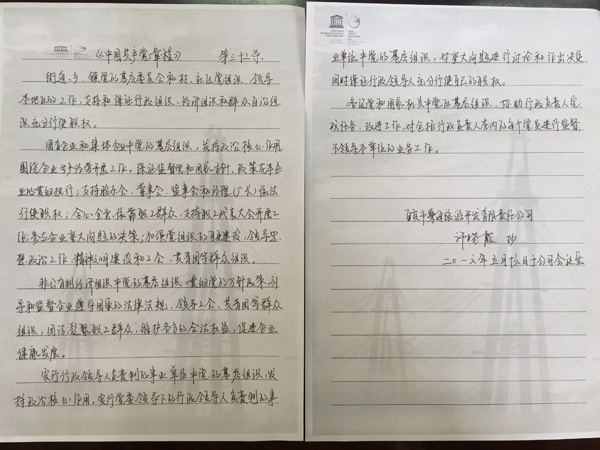 《中国共产党章程》 第三十二条
街道、乡、镇党的基层委员会和村、社区党组织，领导
本地区的工作，支持和保证行政组织、经济组织和群众自治组
织充分行使职权。
国有企业和集体企业中党的基层组织，发挥政治核心作用，
围绕企业生产经营开展工作。保证监督党和国家方针、政策在本企
业的贯彻执行；支持股东会、董事会、监事会和经理（厂长）依法
行使职权；全心全意依靠职工群众，支持职工代表大会开展工
作；参与企业重大问题的决策；加强党组织的自身建设，领导思
想政治工作、精神文明建设和工会、共青团等群众组织。
非公有制经济组织中党的基层组织，贯彻党的方针政策，引
导和监督企业遵守国家的法律法规，领导工会、共青团等群众
组织，团结凝聚职工群众，维护各方的合法权益，促进企业
健康发展。
实行行政领导人负责制的事业单位中党的基层组织，发
挥政治核心作用。实行党委领导下的行政领导人负责制的事
业单位中党的基层组织，对重大问题进行讨论和作出决定，
同时保证行政领导人充分行使自己的职权。
各级党和国家机关中党的基层组织，协助行政负责人完
成任务，改进工作，对包括行政负责人在内的每个党员进行监督，
不领导本单位的业务工作。
旅游开发有限责任公司
二〇一六年五月 日于公司会议室